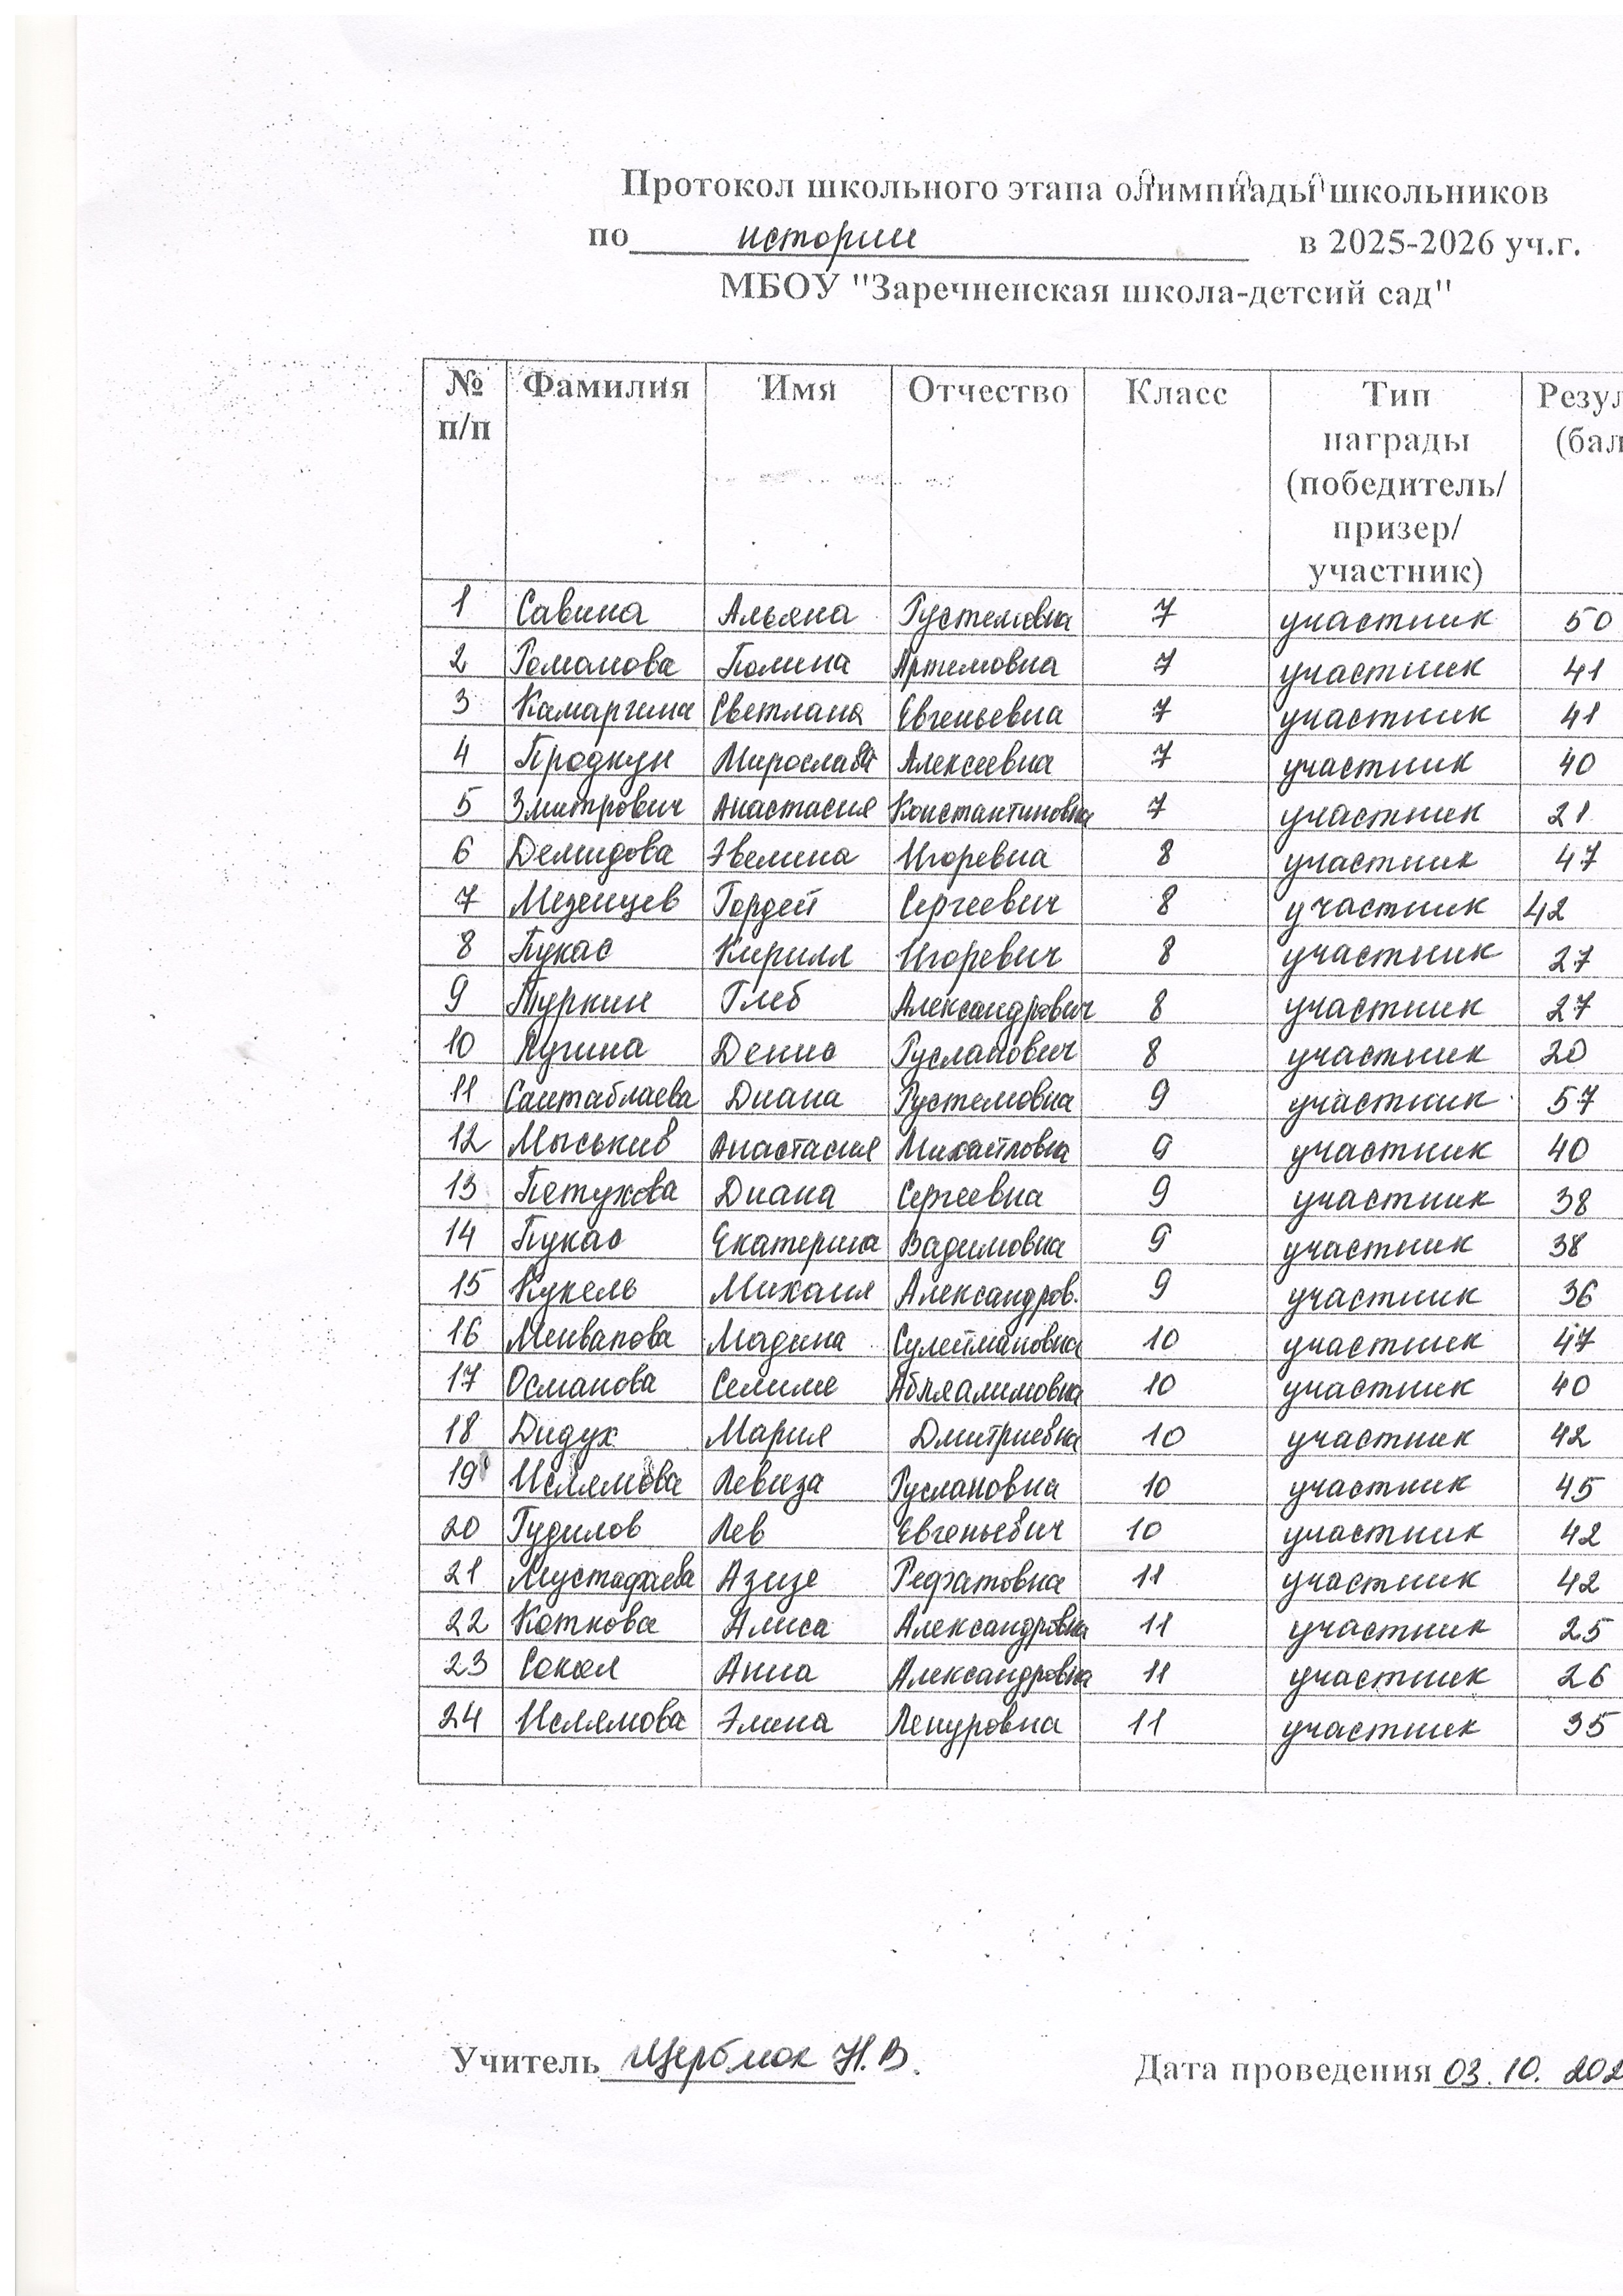 Протокол школьного этапа олимпиады школьников
по истории в 2025-2026 уч.г.
МБОУ "Заречненская школа-детсий сад"
№ п/п Фамилия Имя Отчество Класс Тип награды (победитель/ призер/ участник) Резул (бал
1 Савина Альяна Рустемовна 7 участник 50
2 Романова Полина Артемовна 7 участник 41
3 Камаргина Светлана Евгеньевна 7 участник 41
4 Продкун Мирослава Алексеевна 7 участник 40
5 Змитрович Анастасия Константиновна 7 участник 21
6 Демидова Эвелина Игоревна 8 участник 47
7 Мезенцев Гордей Сергеевич 8 участник 42
8 Пукас Кирилл Игоревич 8 участник 27
9 Туркин Глеб Александрович 8 участник 27
10 Денис Русланович 8 участник 20
11 Саитаблаева Диана Рустемовна 9 участник 57
12 Мыськив Анастасия Михайловна 9 участник 40
13 Петухова Диана Сергеевна 9 участник 38
14 Пукас Екатерина Вадимовна 9 участник 38
15 Кукель Михаил Александров. 9 участник 36
16 Менвапова Мадина Сулеймановна 10 участник 47
17 Османова Селиме Абляалимовна 10 участник 40
18 Дидух Мария Дмитриевна 10 участник 42
19 Ислямова Левиза Руслановна 10 участник 45
20 Гудилов Лев Евгеньевич 10 участник 42
21 Мустафаева Азизе Рефатовна 11 участник 42
22 Коткова Алиса Александровна 11 участник 25
23 Сокол Анна Александровна 11 участник 26
24 Ислямова Элина Ленуровна 11 участник 35
Учитель Щерблюк Н.В. Дата проведения 03.10. 202